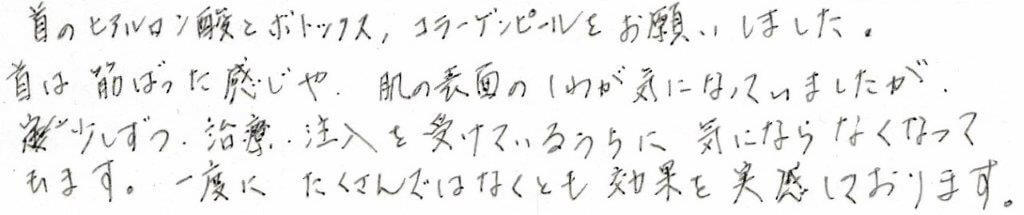 首のヒアルロン酸とボトックス, コラーゲンピールをお願いしました。
首は筋ばった感じや. 肌の表面のしわが気になっていましたが.
少しずつ. 治療. 注入を受けているうちに 気にならなくなって
います。一度に たくさんではなくとも 効果を実感しております。